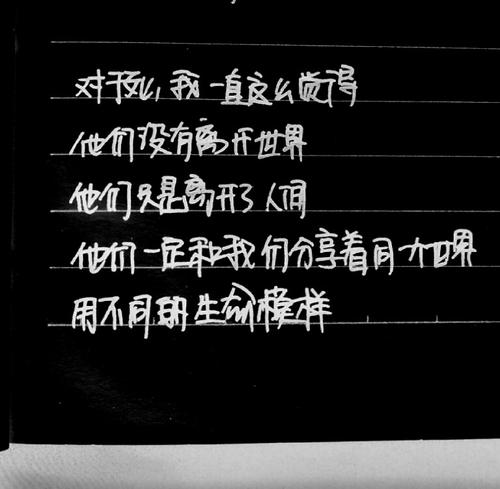 对于，我一直这么觉得
他们没有离开世界
他们只是离开了人间
他们一定和我们分享着同一个世界
用不同的生命模样